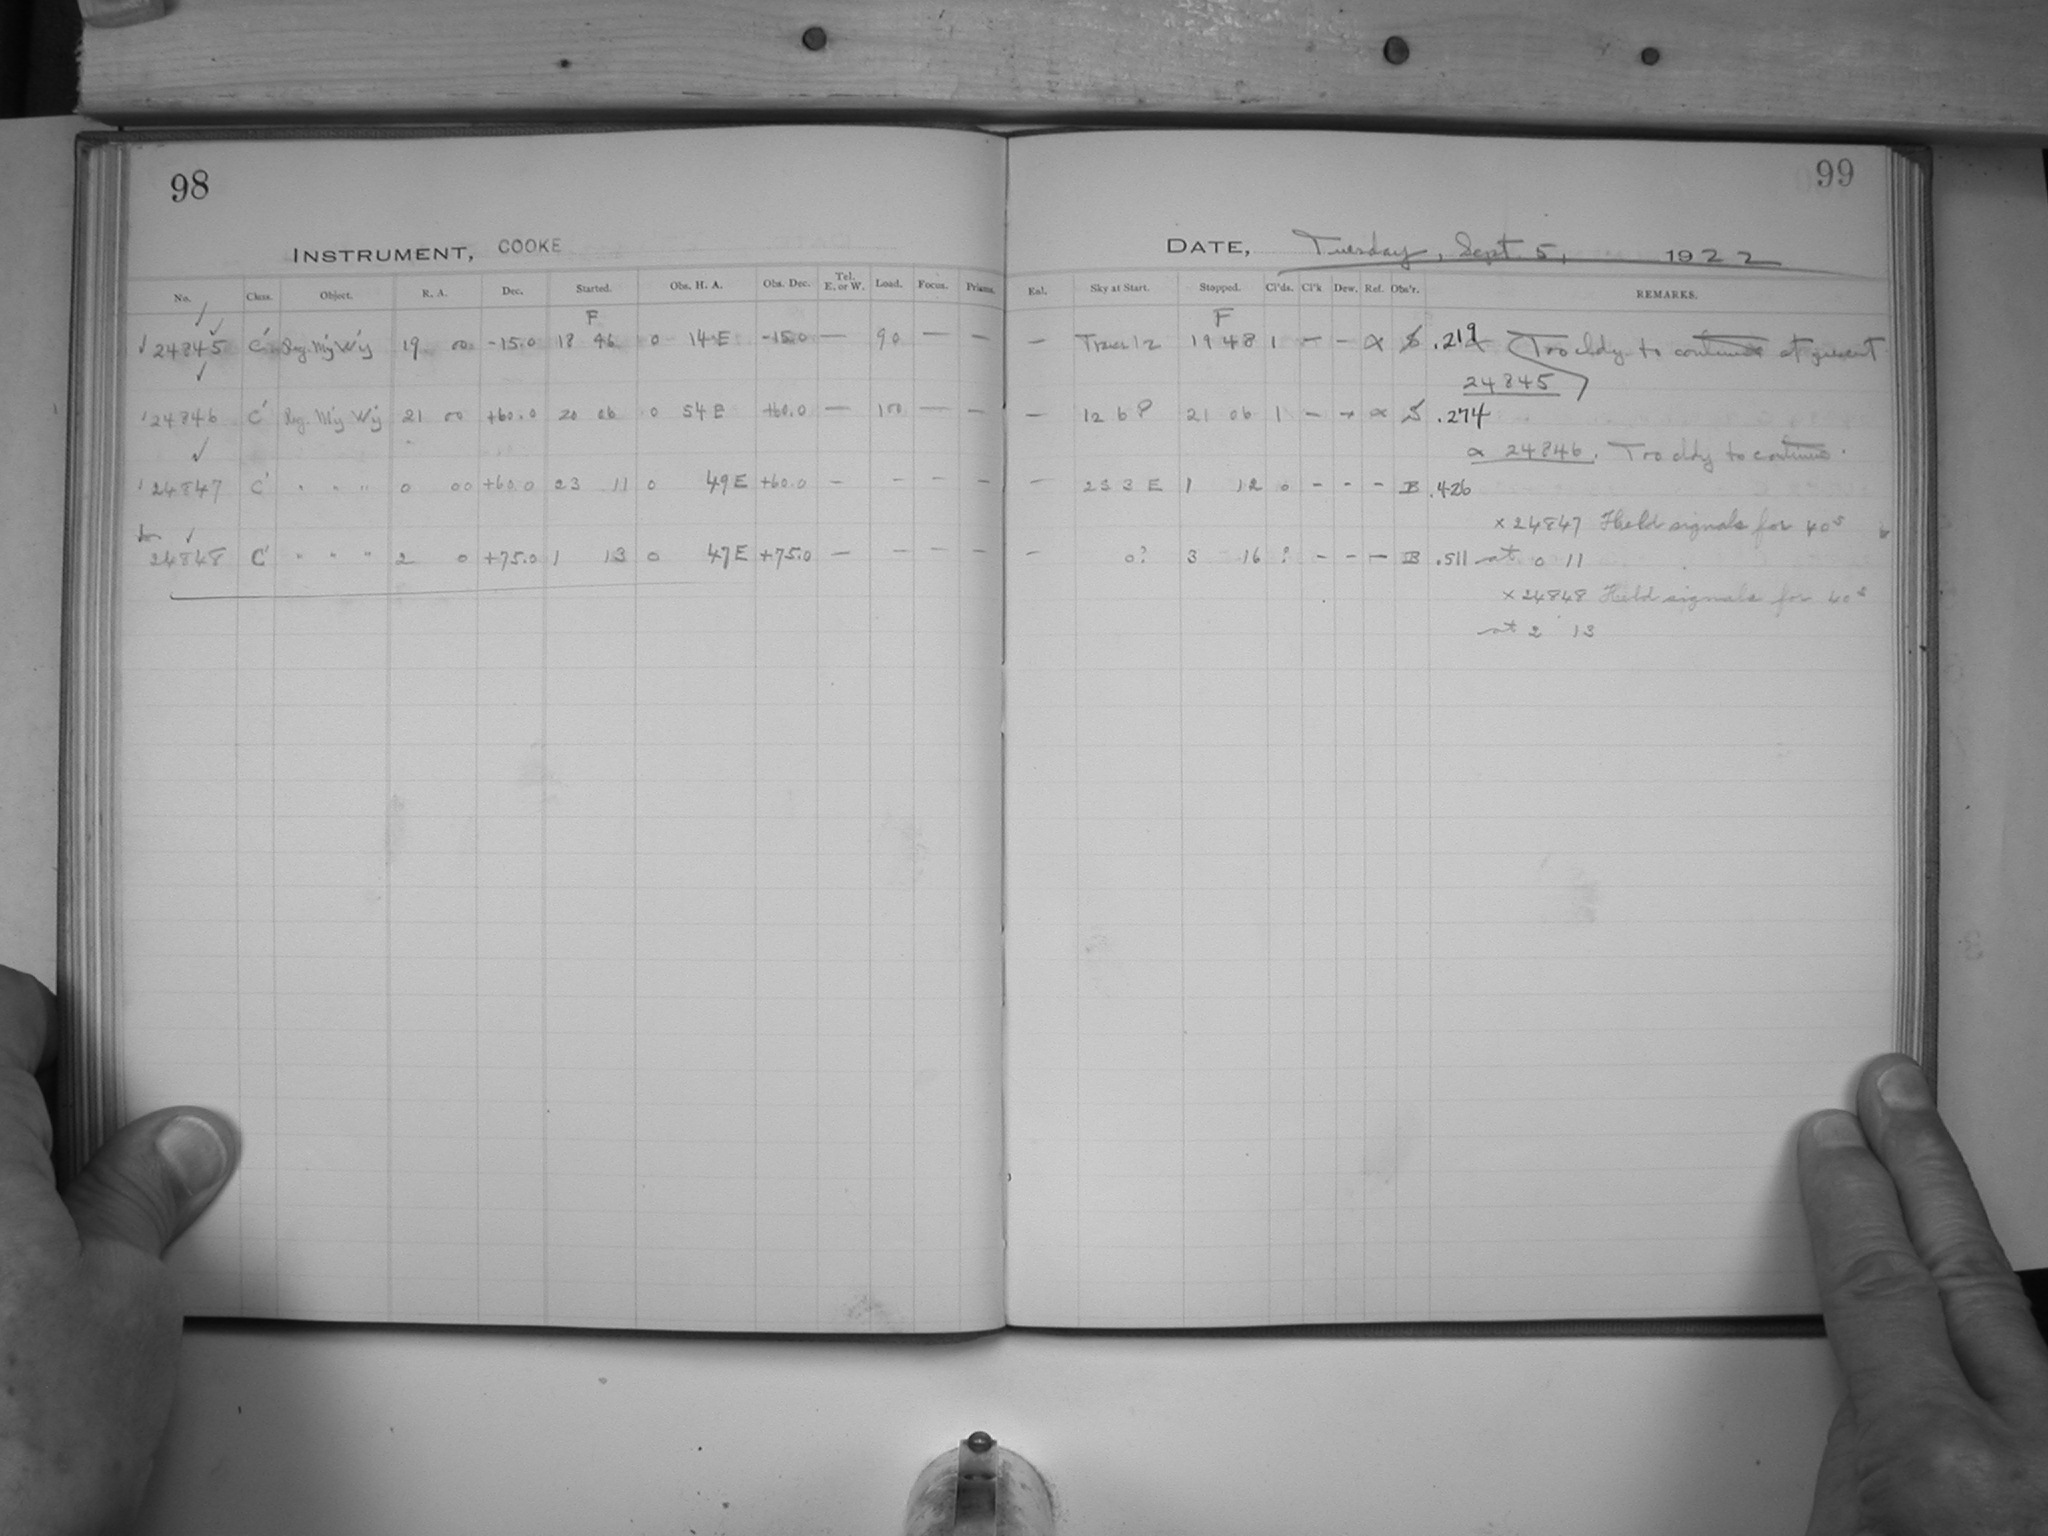 98
99
INSTRUMENT, COOKE
DATE, Tuesday, Sept. 5, 1922
No. Class. Object. R. A. Dec. Started. Obs. H. A. Obs. Dec. Tel. E. or W. Load. Focus. Prisms.
Eol. Sky at Start. Stopped. Cl'ds. Cl'k Dew. Ref. Obs'r. REMARKS.
F
F
24845 C' Reg. My Wy 19 00 -15.0 18 46 0 14 E -15.0 — 90 — —
— 12 19 48 1 — — α S .219 Too cldy to continue at present
24845
24846 C' Reg. My Wy 21 00 +60.0 20 06 0 54 E +60.0 — 100 — —
— 12 6 ? 21 06 1 — — α S .274
α 24846. Too cldy to continue.
24847 C' " " " 0 00 +60.0 23 11 0 49 E +60.0 — — — —
— 23 3 E 1 12 0 — — — B .426
× 24847 Held signals for 40s
24848 C' " " " 2 0 +75.0 1 13 0 47 E +75.0 — — — —
— 0? 3 16 ? — — — B .511 at 0 11
× 24848 Held signals for 40s
at 2 13